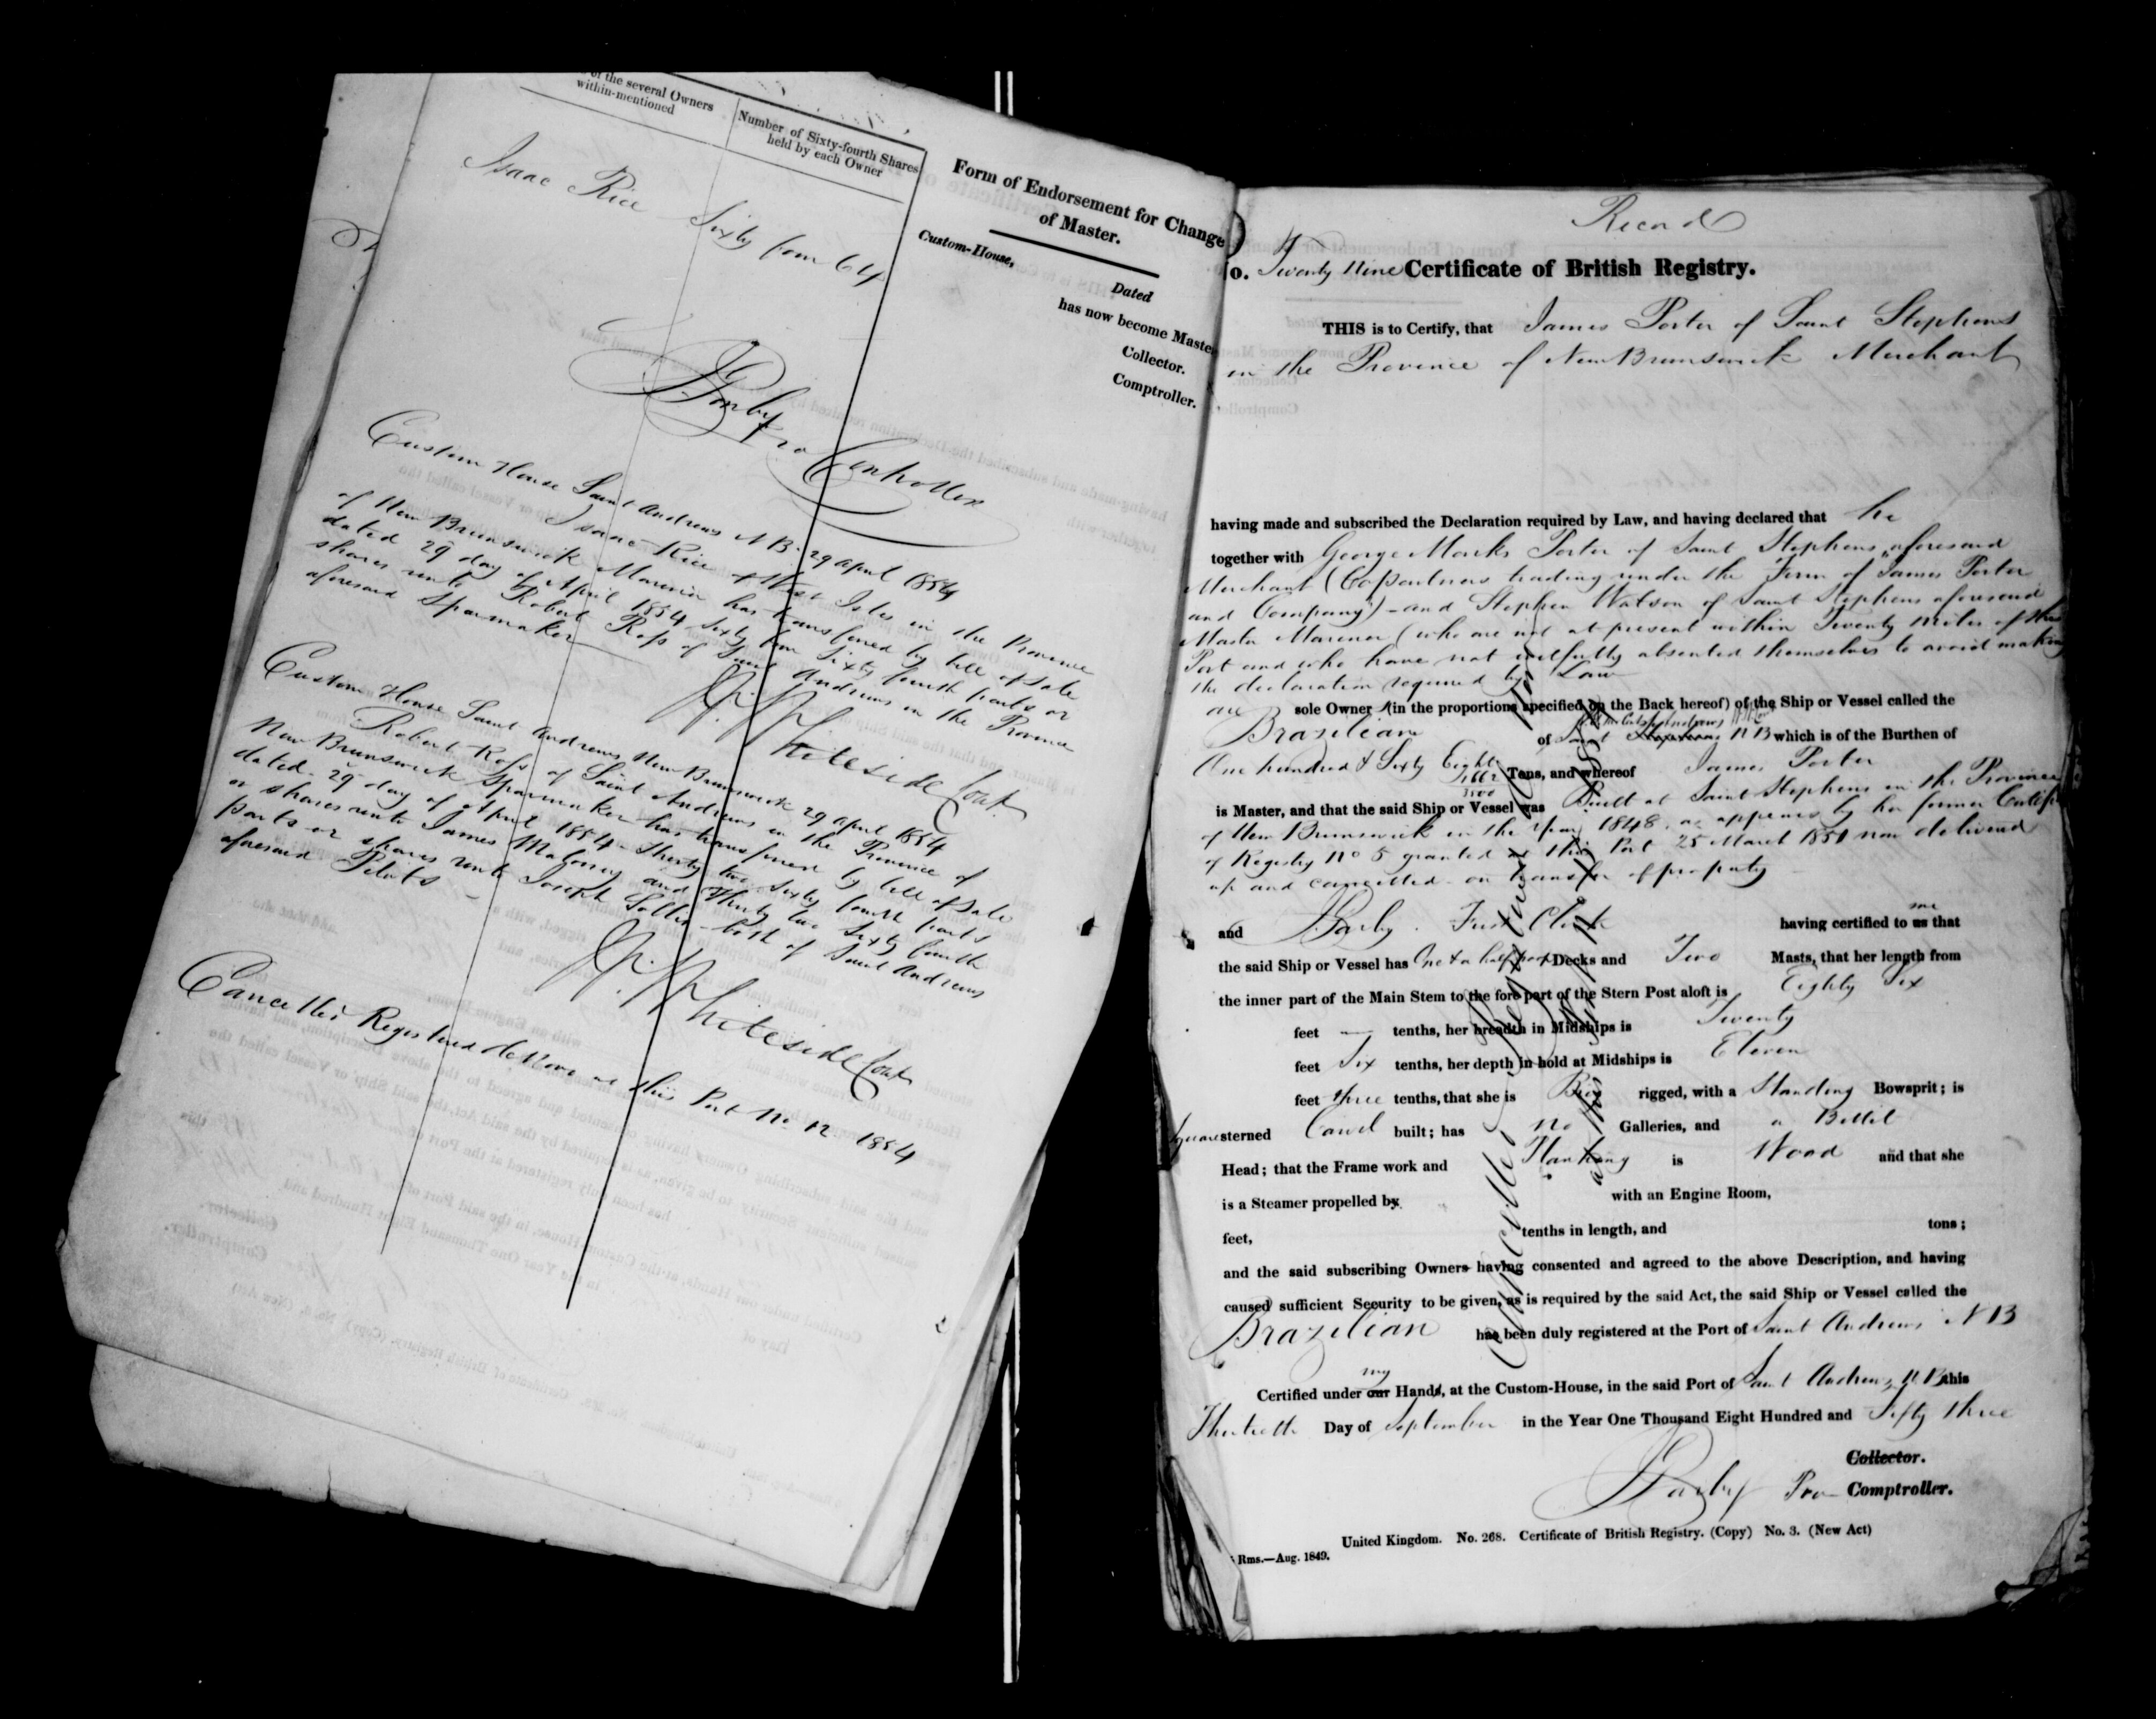 of the several Owners
within-mentioned
Number of Sixty-fourth Shares
held by each Owner
Isaac Rice Sixty four 64
Form of Endorsement for Change
of Master.
Custom-House,
Dated
has now become Master
Collector.
Comptroller.
Pro Controller
Custom House Saint Andrews N B. 29 April 1854
Isaac Rice of West Isles in the Province
of New Brunswick Mariner has transferred by bill of Sale
dated 29 day of April 1854 Sixty four Sixty fourth parts or
shares unto Robert Ross of Saint Andrews in the Province
aforesaid Sparmaker
Whiteside Cont
Custom House Saint Andrews New Brunswick 29 April 1854
Robert Ross of Saint Andrews in the Province of
New Brunswick Sparmaker has transferred by bill of Sale
dated 29 day of April 1854 Thirty two Sixty fourth parts
or shares unto James Maloney and Thirty two Sixty fourth
parts or shares unto Joseph both of Saint Andrews
aforesaid Pilots
Whiteside Cont
Cancelled Registered de Novo at this Port No 12 1854
Record
No. Twenty Nine Certificate of British Registry.
THIS is to Certify, that James Porter of Saint Stephens
in the Province of New Brunswick Merchant
having made and subscribed the Declaration required by Law, and having declared that he
together with George Marks Porter of Saint Stephens aforesaid
Merchant (Copartners trading under the Firm of James Porter
and Company) - and Stephen Watson of Saint Stephens aforesaid
Master Mariner (who are not at present within Twenty miles of this
Port and who have not wilfully absented themselves to avoid making
the declaration required by Law
are sole Owners (in the proportions specified on the Back hereof) of the Ship or Vessel called the
Brazilian of Saint Andrews N B which is of the Burthen of
One hundred & Sixty Eight Tons, and whereof James Porter
is Master, and that the said Ship or Vessel was Built at Saint Stephens in the Province
of New Brunswick in the Year 1848 as appears by her former Certife
of Registry No 5 granted at this Port 25 March 1851 now delivered
up and cancelled on transfer of property
and First Clerk having certified to me that
the said Ship or Vessel has One & a half Decks and Two Masts, that her length from
the inner part of the Main Stem to the fore part of the Stern Post aloft is Eighty Six
feet — tenths, her breadth in Midships is Twenty
feet Six tenths, her depth in hold at Midships is Eleven
feet three tenths, that she is Brig rigged, with a Standing Bowsprit; is
Square sterned Carvel built; has no Galleries, and a Billet
Head; that the Frame work and Planking is Wood and that she
is a Steamer propelled by with an Engine Room,
feet, tenths in length, and tons;
and the said subscribing Owners having consented and agreed to the above Description, and having
caused sufficient Security to be given, as is required by the said Act, the said Ship or Vessel called the
Brazilian has been duly registered at the Port of Saint Andrews N B
Certified under my Hand, at the Custom-House, in the said Port of Saint Andrews N B this
Thirtieth Day of September in the Year One Thousand Eight Hundred and Fifty three
Collector.
Pro Comptroller.
United Kingdom. No. 268. Certificate of British Registry. (Copy) No. 3. (New Act)
Rms.—Aug. 1849.